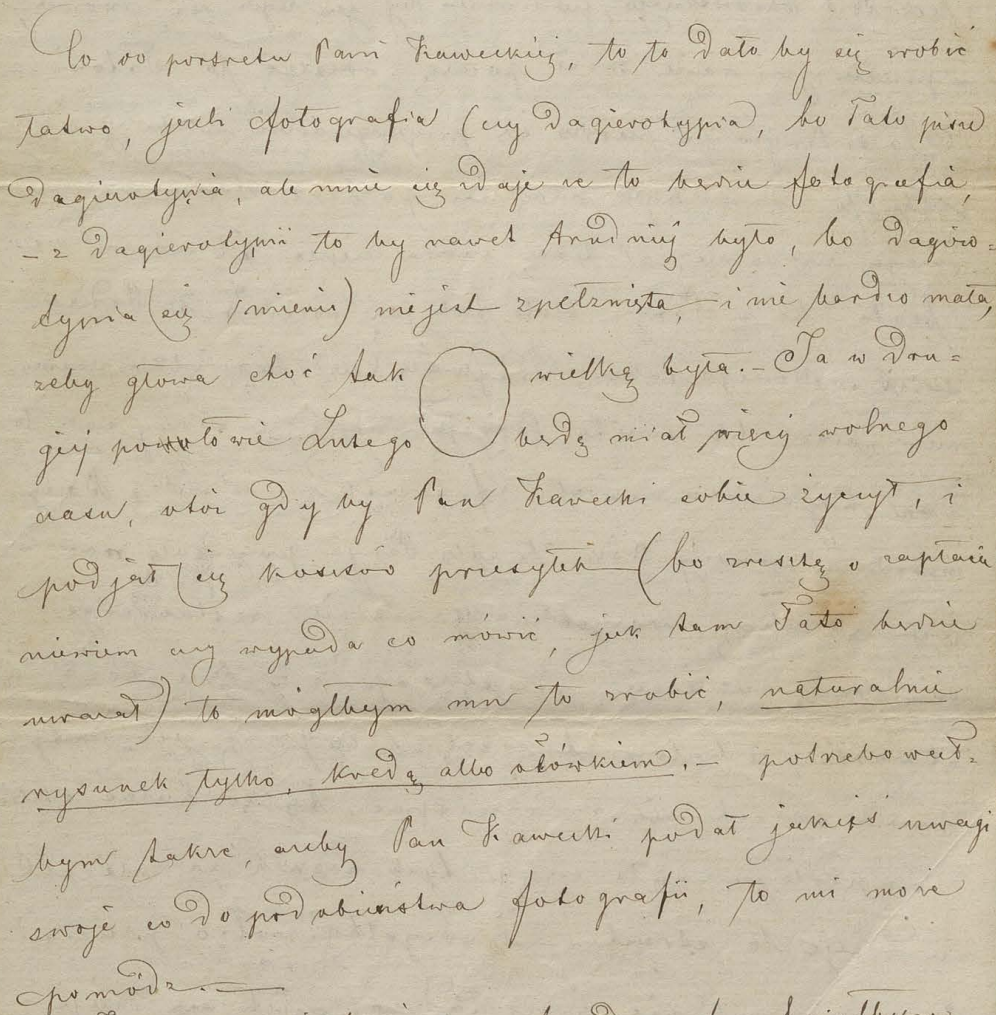 Co do portretu Pani Kaweckiéj, to to dało by się zrobić
łatwo, jeżli fotografia (czy Dagierotypia, bo Tato pisze
Dagierotypia, ale mnie się zdaje że to będzie fotografia,
– z Dagierotypii to by nawet trudniéj było, bo dagiero=
typia (się zmieni) nie jest spełznięta, i nie bardzo mała,
żeby głowa choć tak wielką była. – Ja w dru=
giéj połowie Lutego będę miał więcéj wolnego
czasu, otóż gdy by Pan Kawecki sobie życzył, i
podjął się kosztów przesyłek (bo zresztą o zapłacie
niewiem czy wypada co mówić, jak tam Tato będzie
uważał) to mógłbym mu to zrobić, naturalnie
rysunek tylko, kredą albo ołówkiem. – potrzebował=
bym także, ażeby Pan Kawecki podał jakieś uwagi
swoje co do podobieństwa fotografii, to mi może
pomódz. —